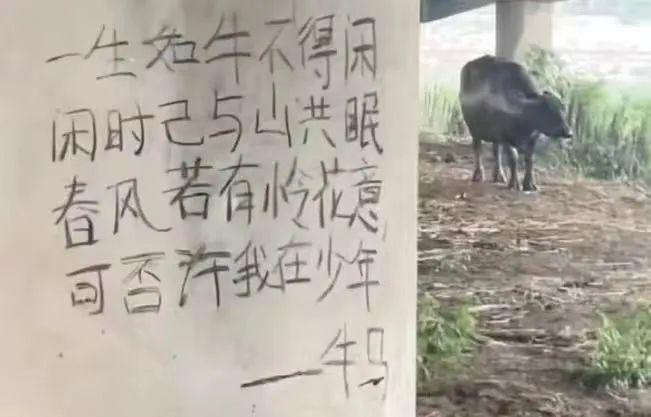 一生如牛不得闲
闲时己与山共眠
春风若有怜花意
可否许我在少年
——牛马